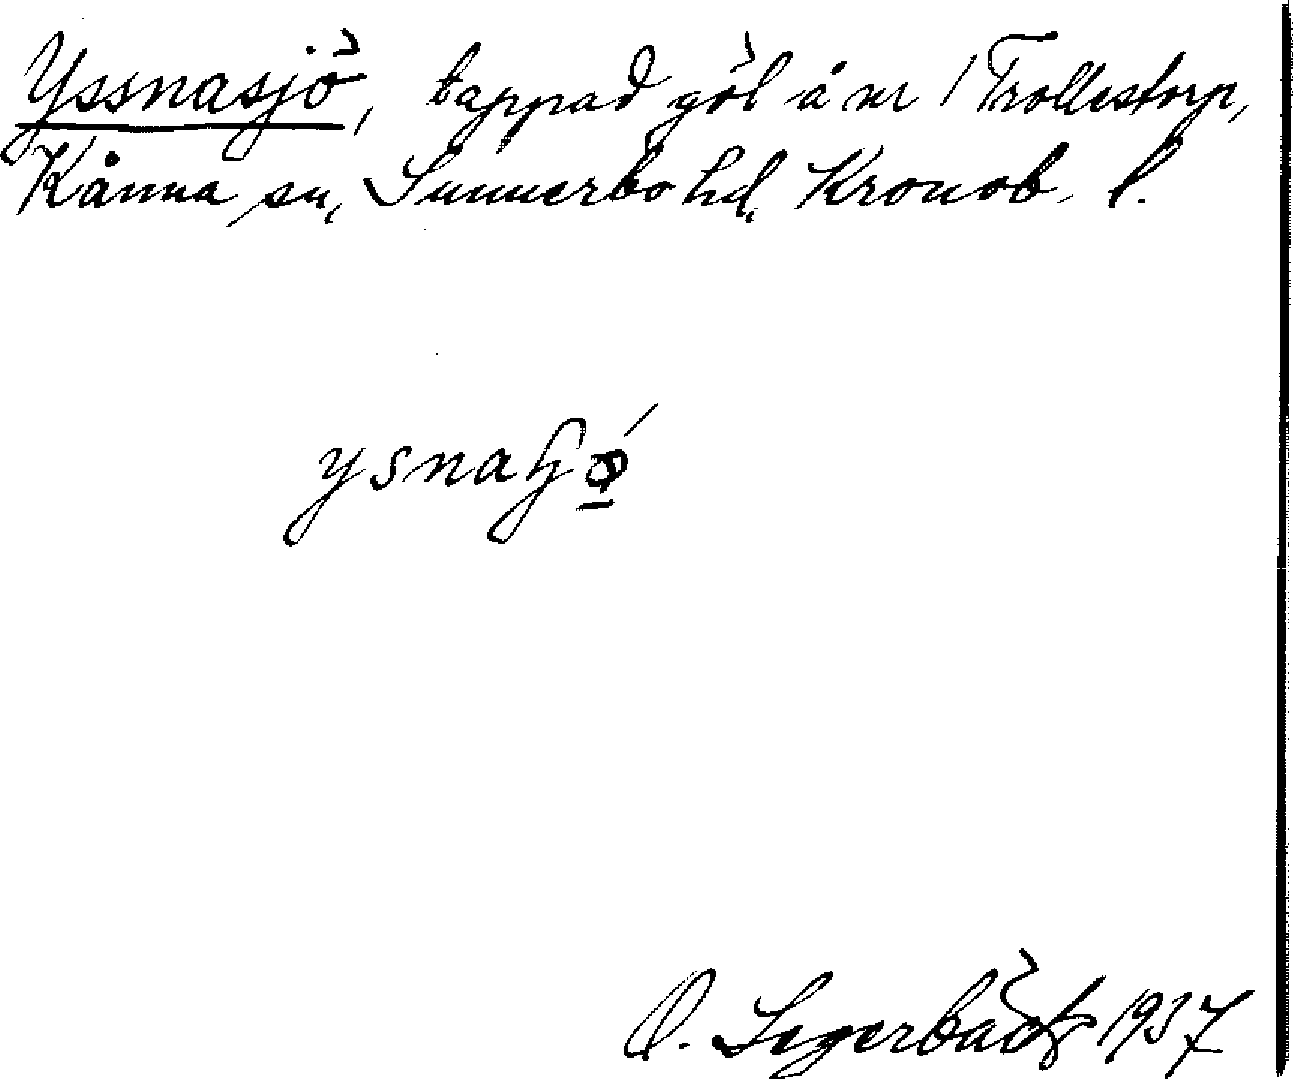 Yssnasjö, tappad göl å nr 1 Trollestorp,
Kånna sn, Sunnerbo hd, Kronob. l.
O. Segerbäck 1937